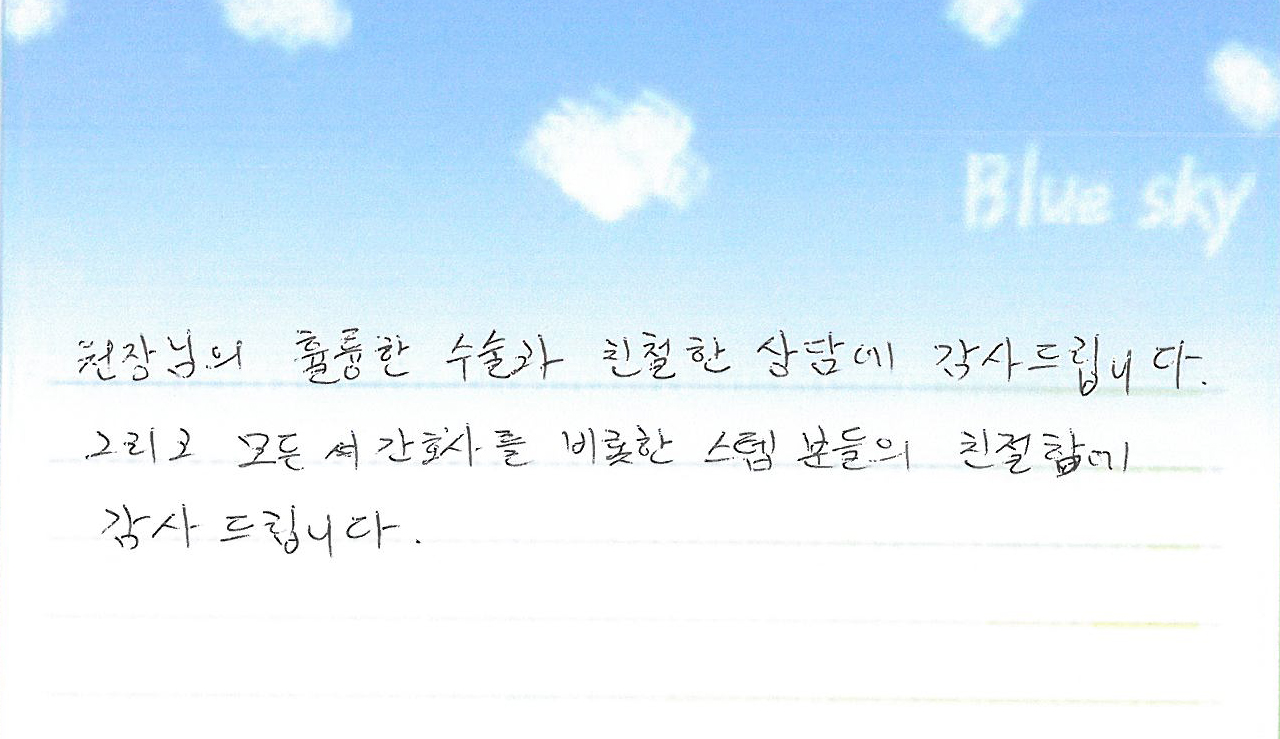 Blue sky
원장님의 훌륭한 수술과 친철한 상담에 감사드립니다.
그리고 모든 간호사를 비롯한 스텝 분들의 친절함에
감사 드립니다.